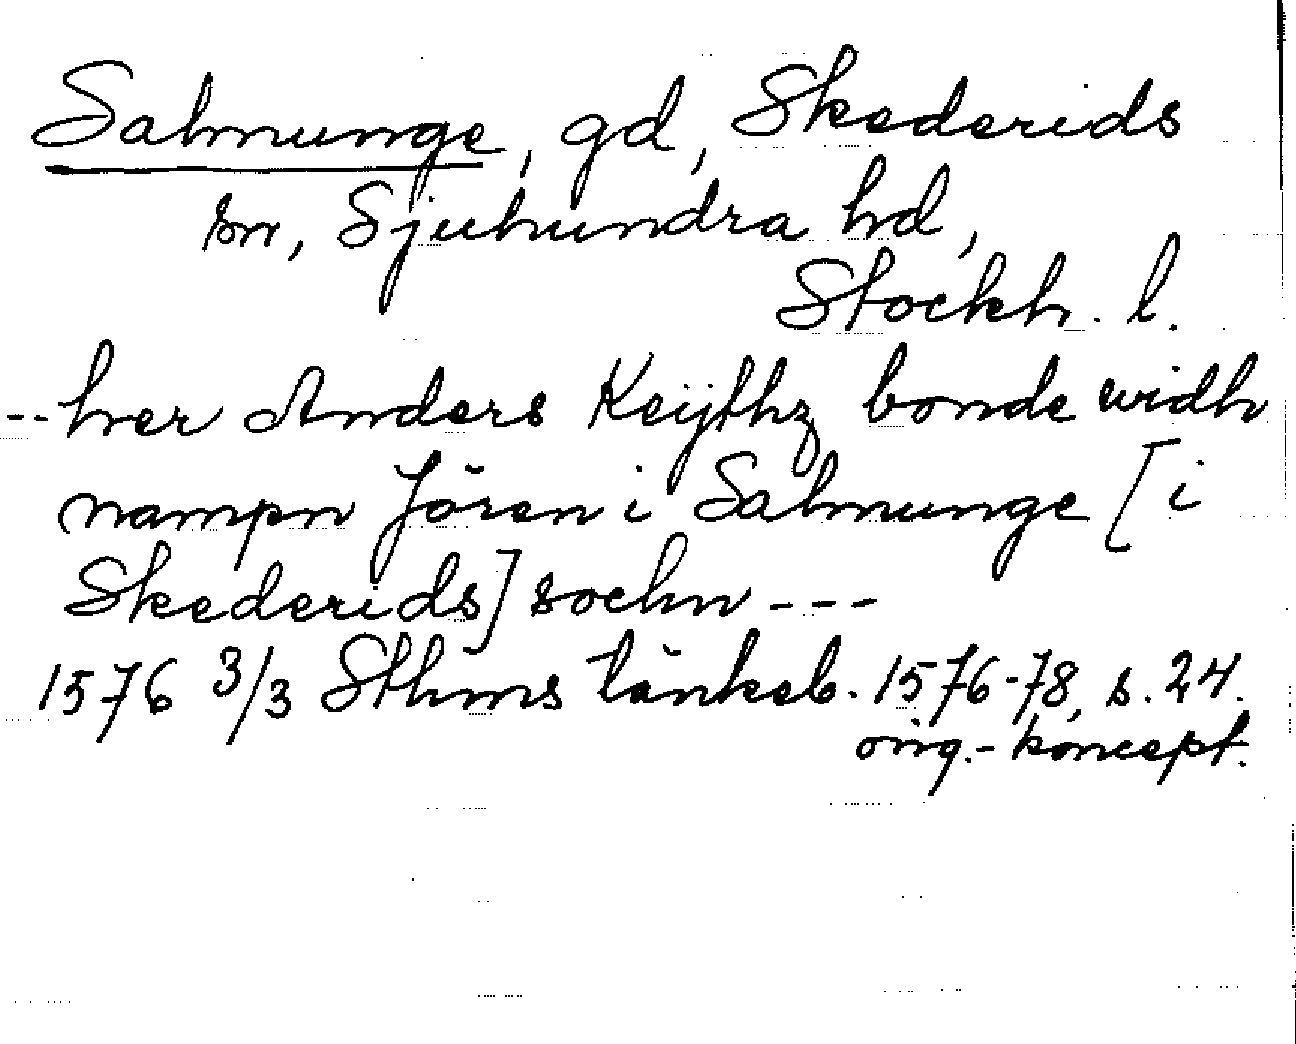 Salmunge, gd, Skederids
sn, Sjuhundra hd,
Stockh. l.
-- her Anders Keijthz bonde widh
nampn Jören i Salmunge [i
Skederids] sochn ---
1576 3/3 Sthms tänkeb. 1576-78, s. 24.
orig.-koncept.